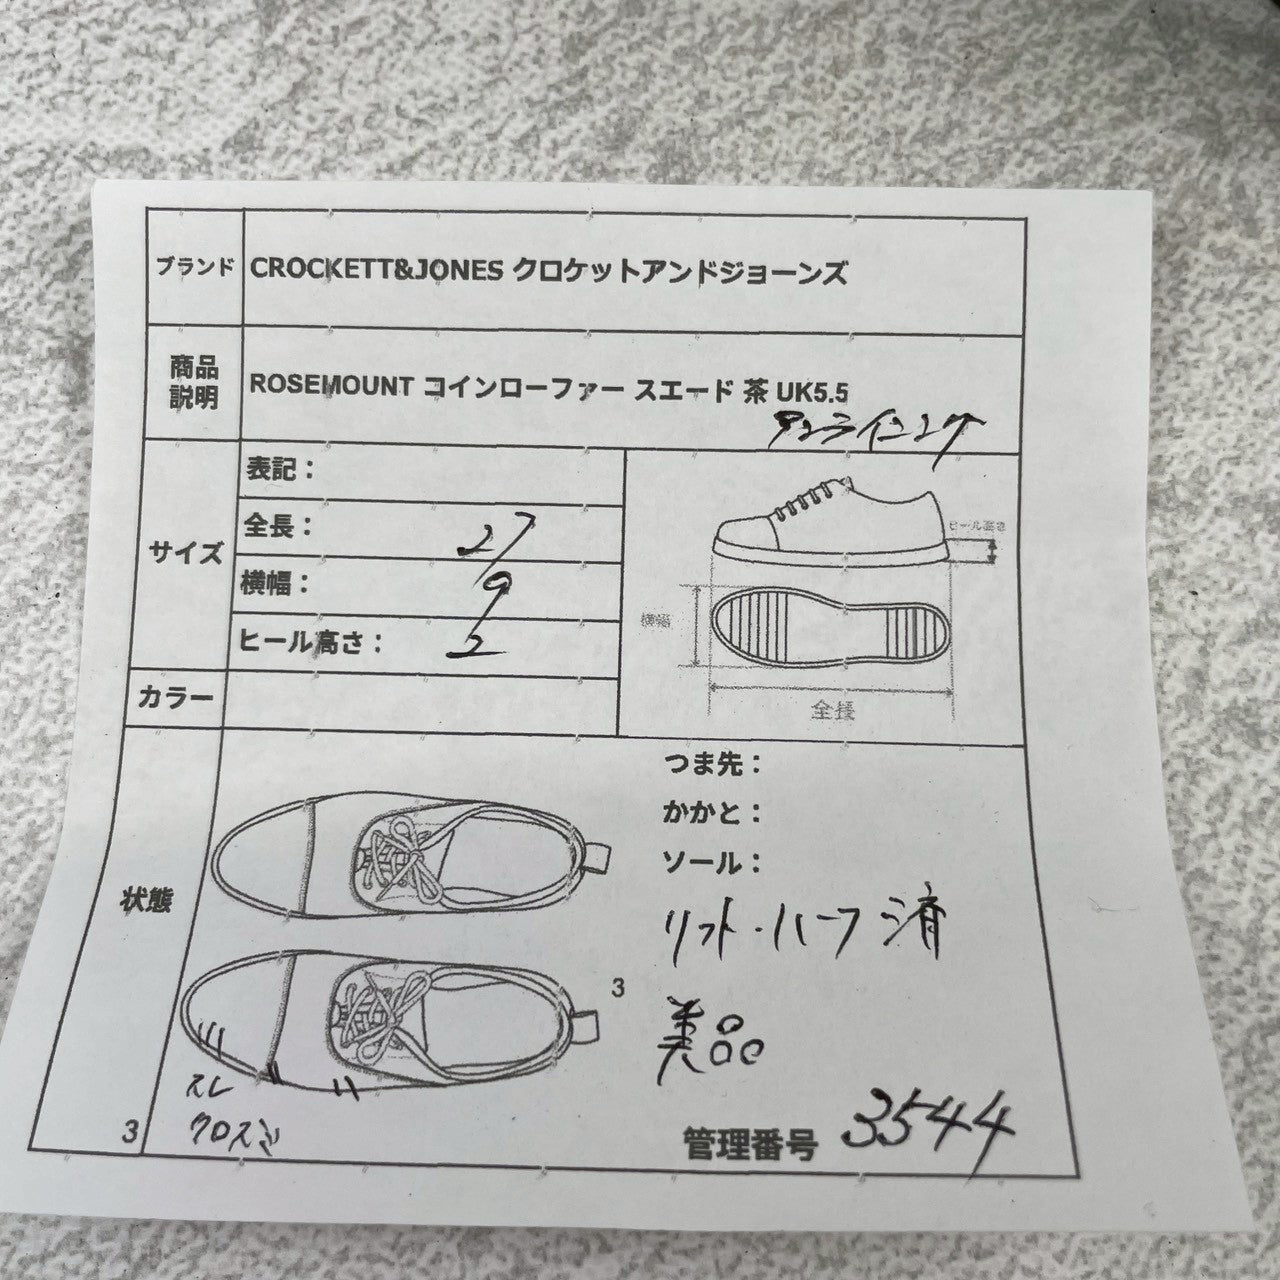 ブランド CROCKETT&JONES クロケットアンドジョーンズ
商品説明 ROSEMOUNT コインローファー スエード 茶 UK5.5
アンライニング
サイズ
表記：
全長： 27
横幅： 9
ヒール高さ： 2
ヒール高さ
横幅
全長
カラー
状態
つま先：
かかと：
ソール：
リフト・ハーフ 済
3
美品
スレ
クロズミ
3
管理番号 3544